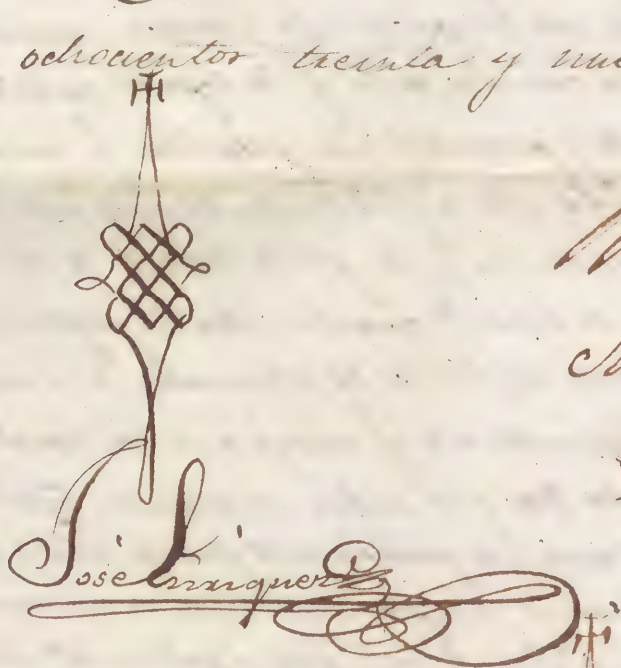 ochocientos treinta y nu
José Enriquez